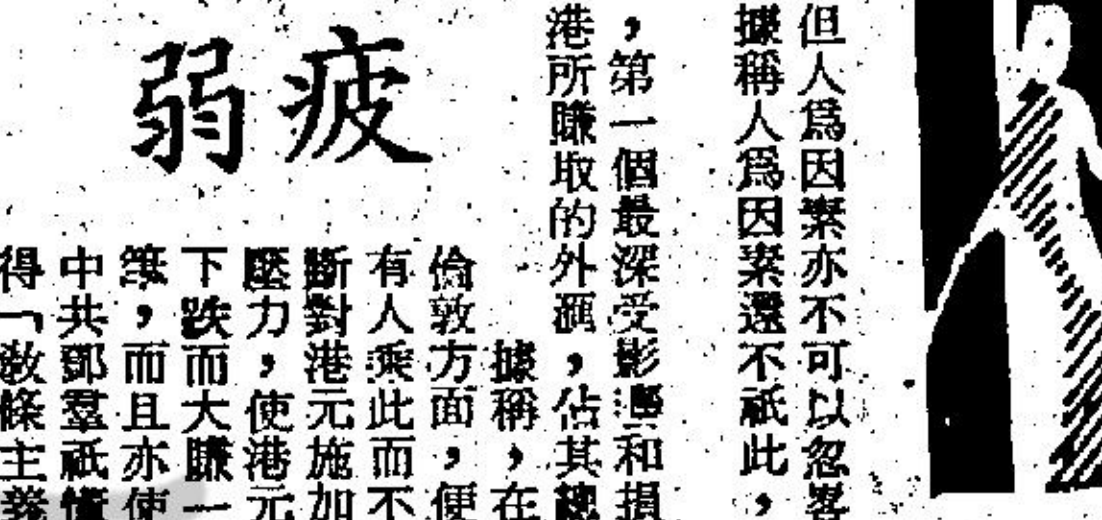 但人爲因素亦不可以忽畧
據稱人爲因素還不祇此，
，第一個最深受影響和損
港所賺取的外滙，佔其總
疲弱
據稱，在
倫敦方面，便
有人乘此而不
斷對港元施加
壓力，使港元
下跌而大賺一
筆，而且亦使
中共鄧羣祇懂
得「教條主義